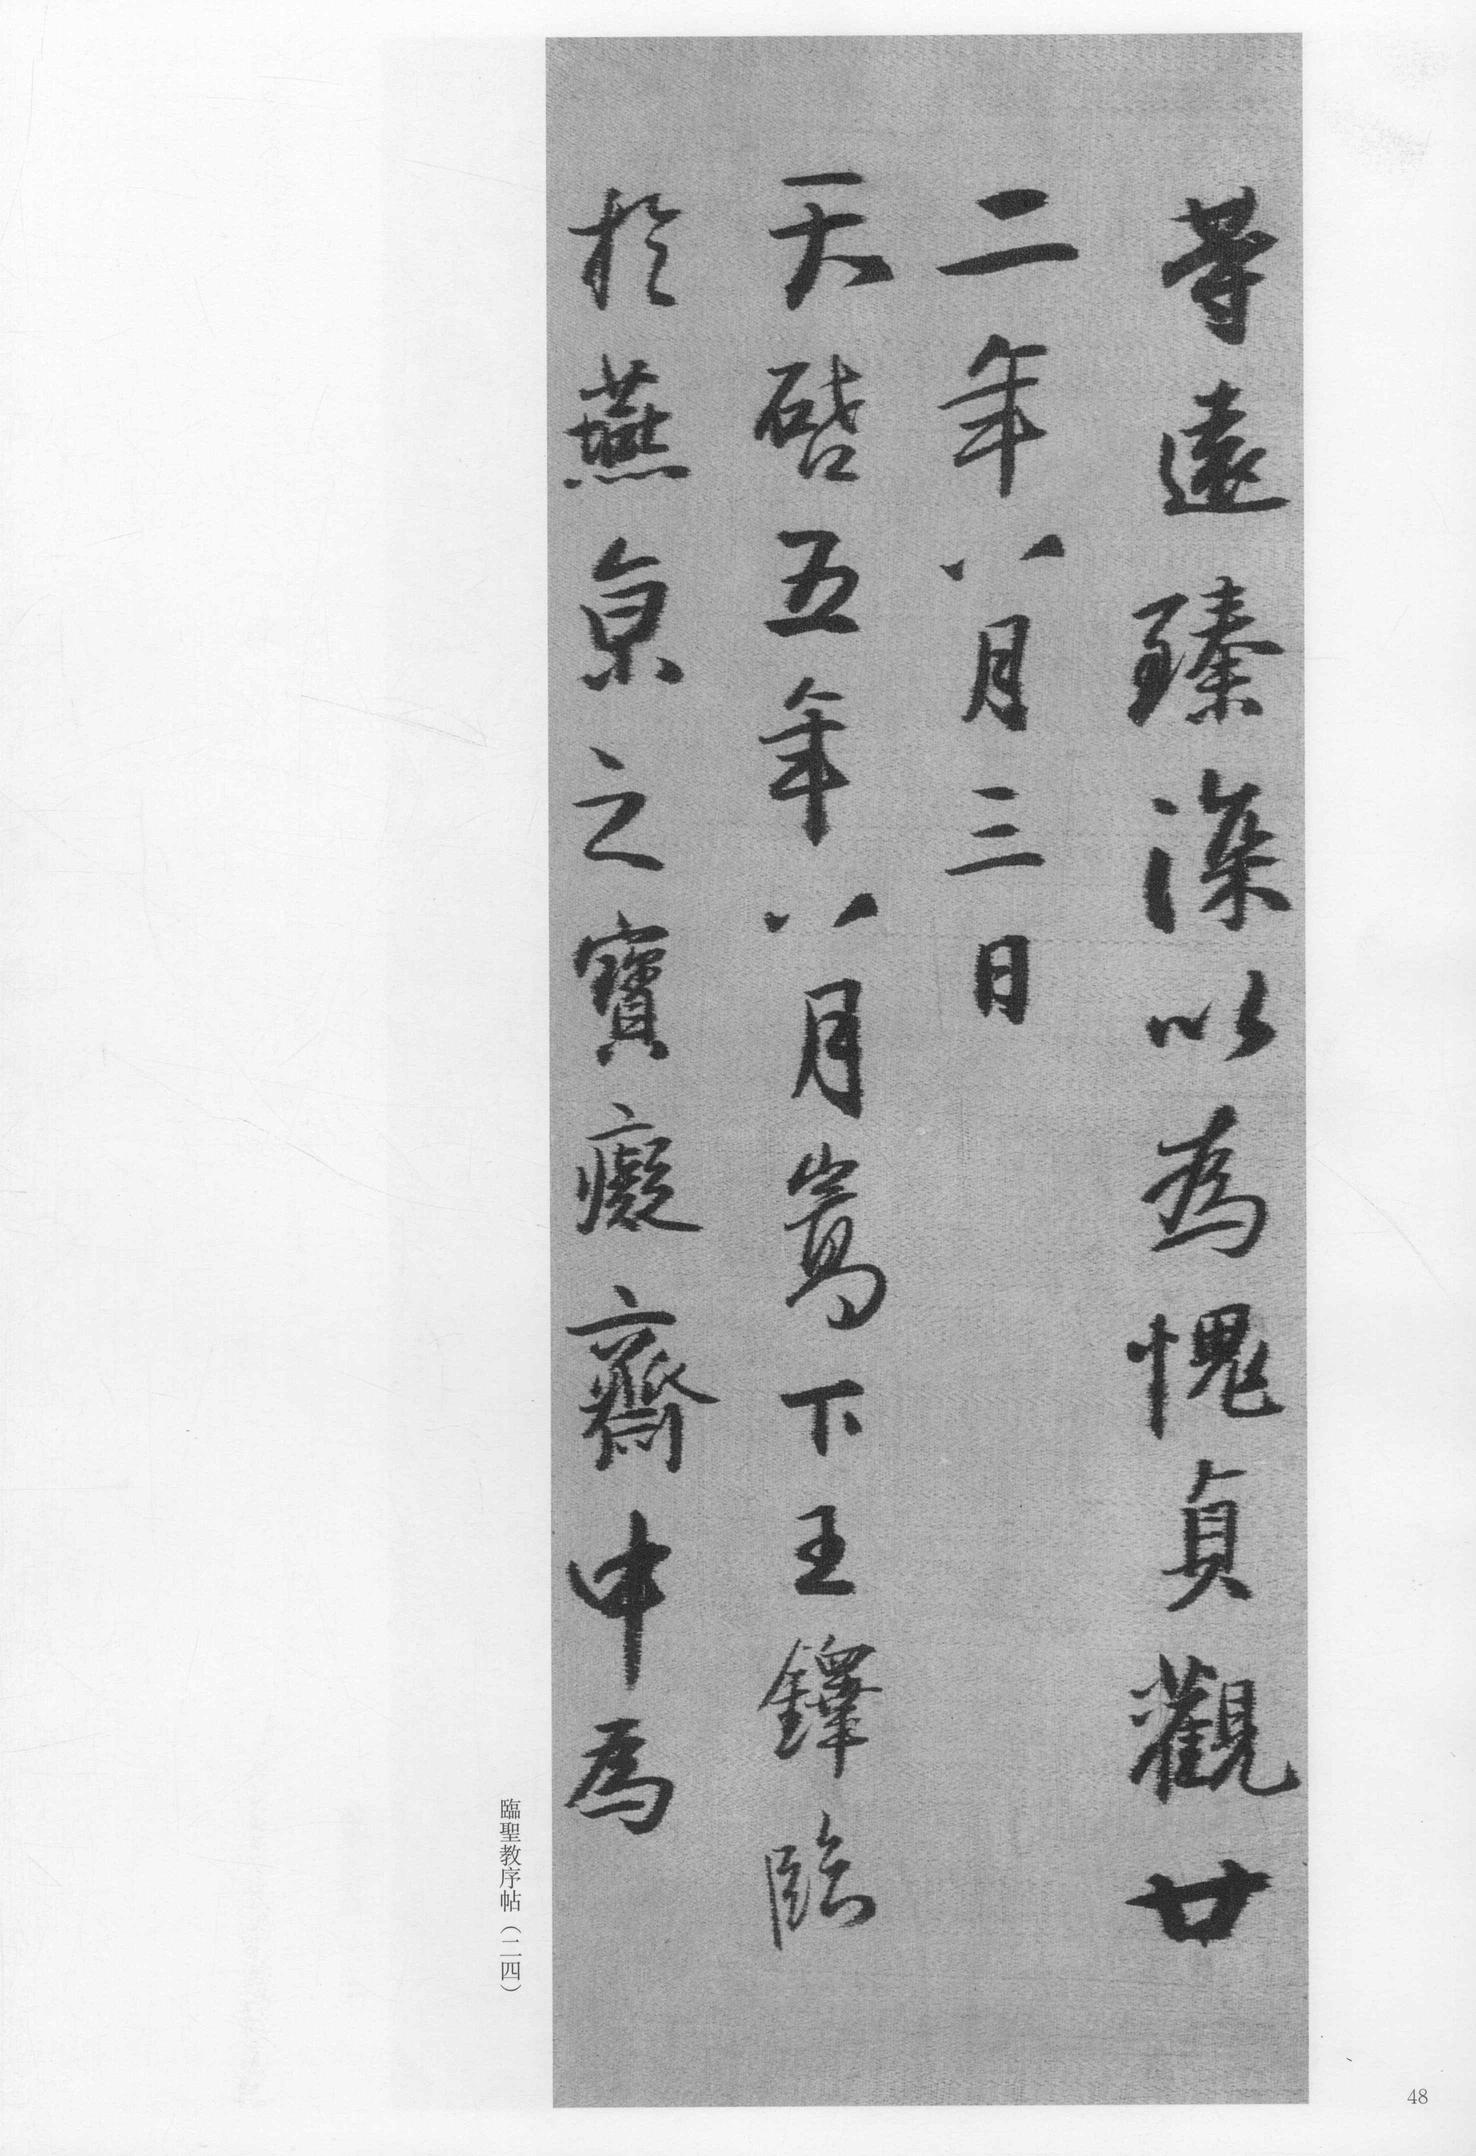 等遠臻深以為愧貞觀廿
二年八月三日
天啓五年八月嵩下王鐸臨
於燕京之寶癡齋中為
臨聖教序帖（二四）
48